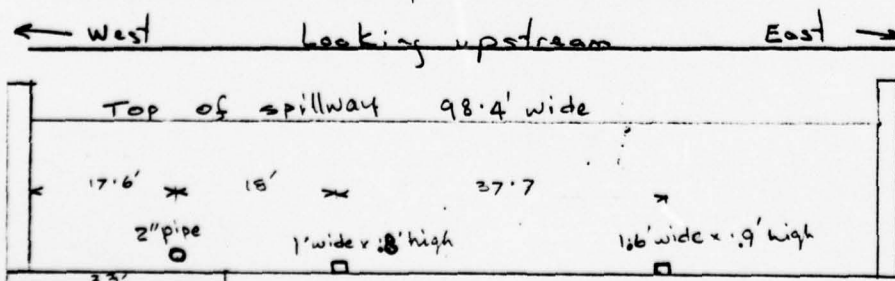 ← West Looking upstream East →
Top of spillway 98.4' wide
17.6' 18' 37.7
2" pipe 1' wide x .8' high 1.6' wide x .9' high
33'